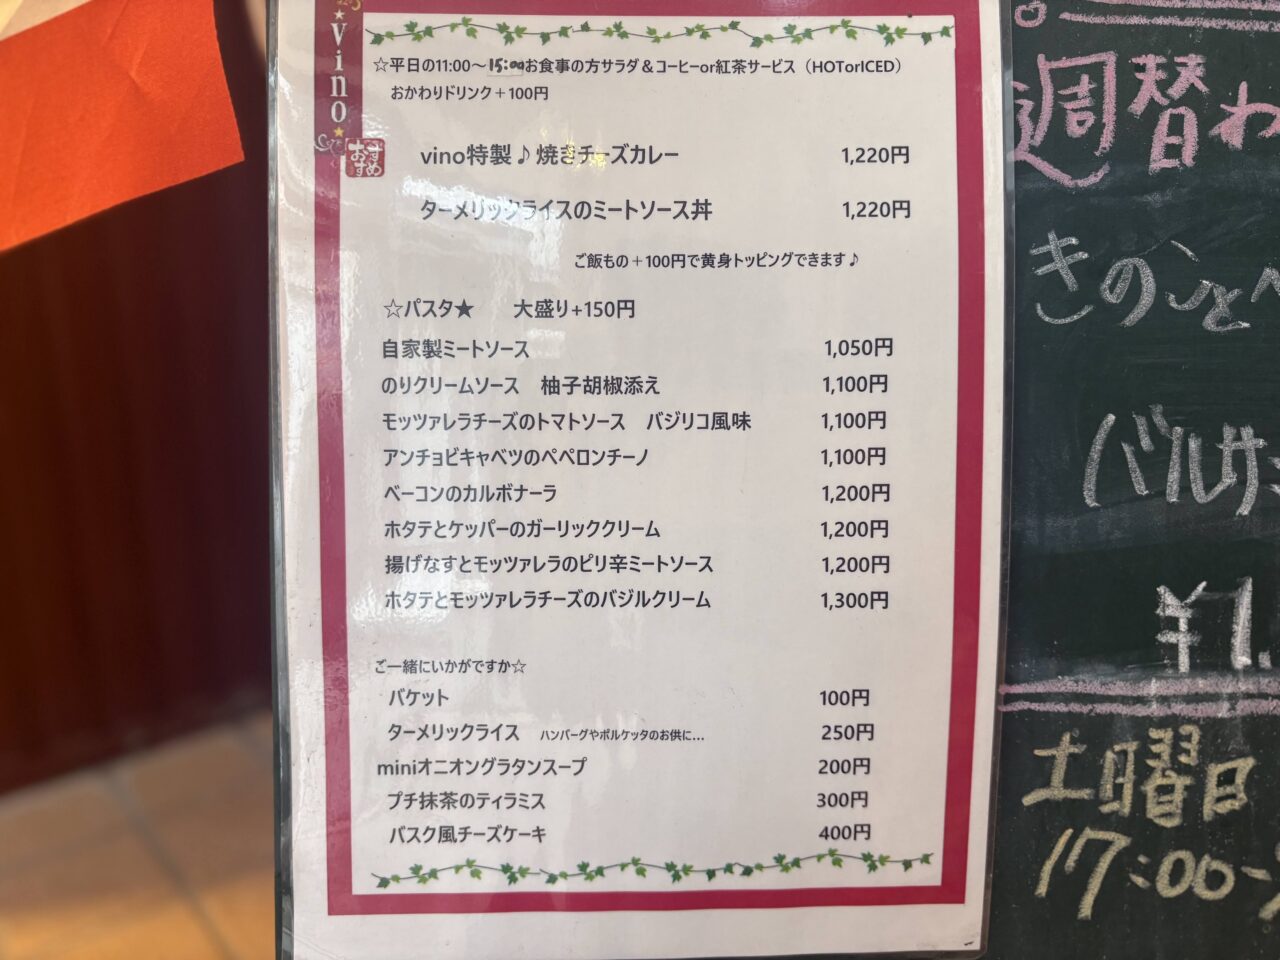 vino
☆平日の11:00～15:00お食事の方サラダ＆コーヒーor紅茶サービス（HOTorICED）
おかわりドリンク＋100円
おすすめ
vino特製♪焼きチーズカレー 1,220円
ターメリックライスのミートソース丼 1,220円
ご飯もの＋100円で黄身トッピングできます♪
☆パスタ★ 大盛り+150円
自家製ミートソース 1,050円
のりクリームソース 柚子胡椒添え 1,100円
モッツァレラチーズのトマトソース バジリコ風味 1,100円
アンチョビキャベツのペペロンチーノ 1,100円
ベーコンのカルボナーラ 1,200円
ホタテとケッパーのガーリッククリーム 1,200円
揚げなすとモッツァレラのピリ辛ミートソース 1,200円
ホタテとモッツァレラチーズのバジルクリーム 1,300円
ご一緒にいかがですか☆
バケット 100円
ターメリックライス ハンバーグやポルケッタのお供に… 250円
miniオニオングラタンスープ 200円
プチ抹茶のティラミス 300円
バスク風チーズケーキ 400円
週替わ
きのこと
バルサ
¥1,
土曜日
17:00~